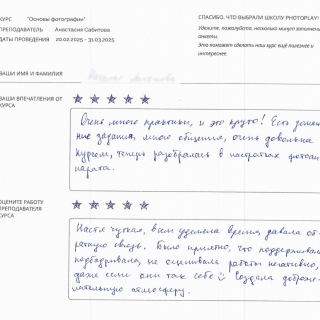 КУРС "Основы фотографии"
ПРЕПОДАВАТЕЛЬ Анастасия Сабитова
ДАТЫ ПРОВЕДЕНИЯ 20.02.2025 - 31.03.2025
СПАСИБО, ЧТО ВЫБРАЛИ ШКОЛУ PHOTOPLAY!
Уделите, пожалуйста, несколько минут заполнению
анкеты.
Это поможет сделать наш курс ещё полезнее и
интереснее.
ВАШИ ИМЯ И ФАМИЛИЯ
ВАШИ ВПЕЧАТЛЕНИЯ ОТ
КУРСА
Очень много практики, и это круто! Есть домаш-
ние задания, много общения, очень довольна
курсом, теперь разобралась в настройках фотоап-
парата.
ОЦЕНИТЕ РАБОТУ
ПРЕПОДАВАТЕЛЯ
КУРСА
Настя чуткая, всем уделила время, давала об-
ратную связь. Было приятно, что поддерживала,
подбадривала, не оценивала работы негативно,
даже если они так себе Создала доброже-
лательную атмосферу.